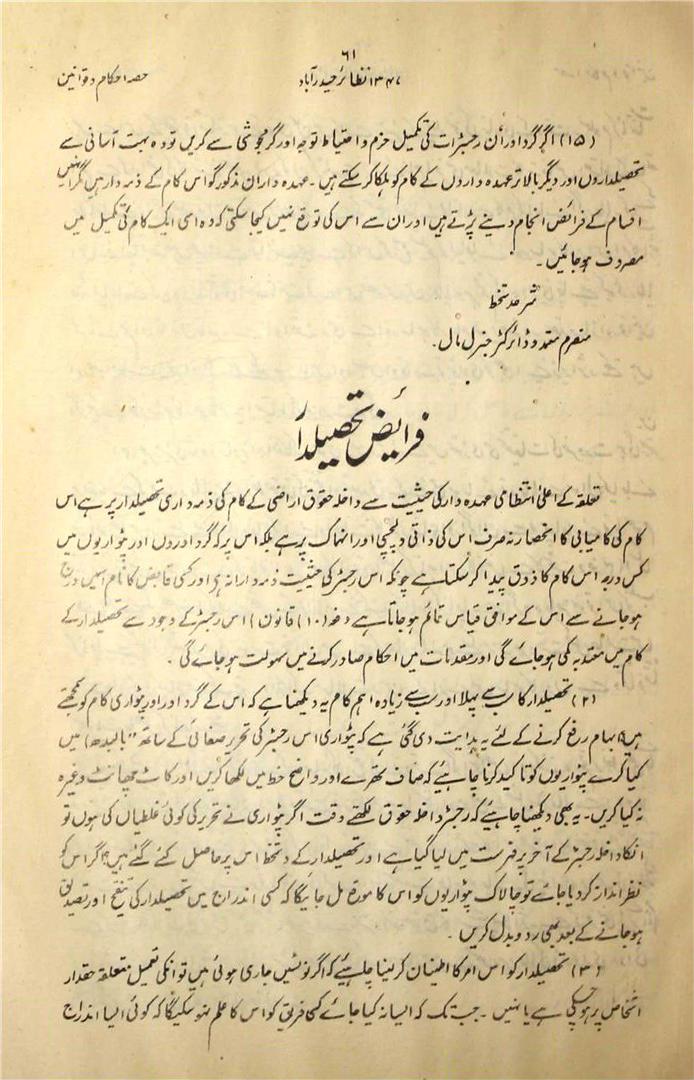 ۶۱
۱۳۴۷ نظائر حیدرآباد
حصہ احکام و قوانین
(۱۵) اگر گرداور اُن رجسٹرات کی تکمیل حزم و احتیاط توجہ اور گرمجوشی سے کریں تو وہ بہت آسانی سے
تحصیلداروں اور دیگر بالاتر عہدہ داروں کے کام کو ہلکا کر سکتے ہیں۔ عہدہ داران مذکور گو اس کام کے ذمہ دار ہیں مگر انہیں
اقسام کے فرائض انجام دینے پڑتے ہیں اور ان سے اس کی توقع نہیں کیجا سکتی کہ وہ اسی ایک کام کی تکمیل میں
مصروف ہوجائیں۔
شرحد ستخط
منصرم معتمد و ڈائرکٹر جنرل مال۔
فرائض تحصیلدار
تعلقہ کے اعلیٰ انتظامی عہدہ دار کی حیثیت سے داخلہ حقوق اراضی کے کام کی ذمہ داری تحصیلدار پر ہے اس
کام کی کامیابی کا انحصار نہ صرف اس کی ذاتی دلچسپی اور انہماک پر ہے بلکہ اس پر کہ گرداوروں اور پٹواریوں میں
کس درجہ اس کام کا ذوق پیدا کر سکتا ہے چونکہ اس رجسٹر کی حیثیت ذمہ دارانہ ہے اور کسی قابض کا نام اسمیں درج
ہوجانے سے اس کے موافق قیاس قائم ہوجاتا ہے دفعہ (۱۰) قانون) اس رجسٹر کے وجود سے تحصیلدار کے
کام میں معتدبہ کمی ہوجائے گی اور مقدمات میں احکام صادر کرنے میں سہولت ہوجائے گی۔
(۲) تحصیلدار کا سب سے پہلا اور سب سے زیادہ اہم کام یہ دیکھنا ہے کہ اس کے گرد اور اور پٹواری کام کو سمجھتے
ہیں ابہام رفع کرنے کے لئے یہ ہدایت دی گئی ہے کہ پٹواری اس رجسٹر کی تحریر صفائی کے ساتھ "بالبدھ) میں
کیا کرے پٹواریوں کو تاکید کرنا چاہیئے کہ صاف ستھرے اور واضح خط میں لکھا کریں اور کاٹ چھانٹ وغیرہ
نہ کیا کریں۔ یہ بھی دیکھنا چاہیئے کہ رجسٹر داخلہ حقوق لکھتے وقت اگر پٹواری نے تحریر کی کوئی غلطیاں کی ہوں تو
انکا داخلہ رجسٹر کے آخر پر فہرست میں لیا گیا ہے اور تحصیلدار کے دستخط اس پر حاصل کئے گئے ہیں؟ اگر اس کو
نظر انداز کر دیا جائے تو چالاک پٹواریوں کو اس کا موقع مل جائیگا کہ کسی اندراج میں تحصیلدار کی تنقیح اور تصدیق
ہوجانے کے بعد بھی رد و بدل کریں۔
(۳) تحصیلدار کو اس امر کا اطمینان کر لینا چاہیئے کہ اگر نوٹسیں جاری ہوئی ہیں تو انکی تعمیل متعلقہ حقدار
اشخاص پر ہوچکی ہے یا نہیں۔ جب تک کہ ایسا نہ کیا جائے کسی فریق کو اس کا علم نہو سکیگا کہ کوئی ایسا اندراج